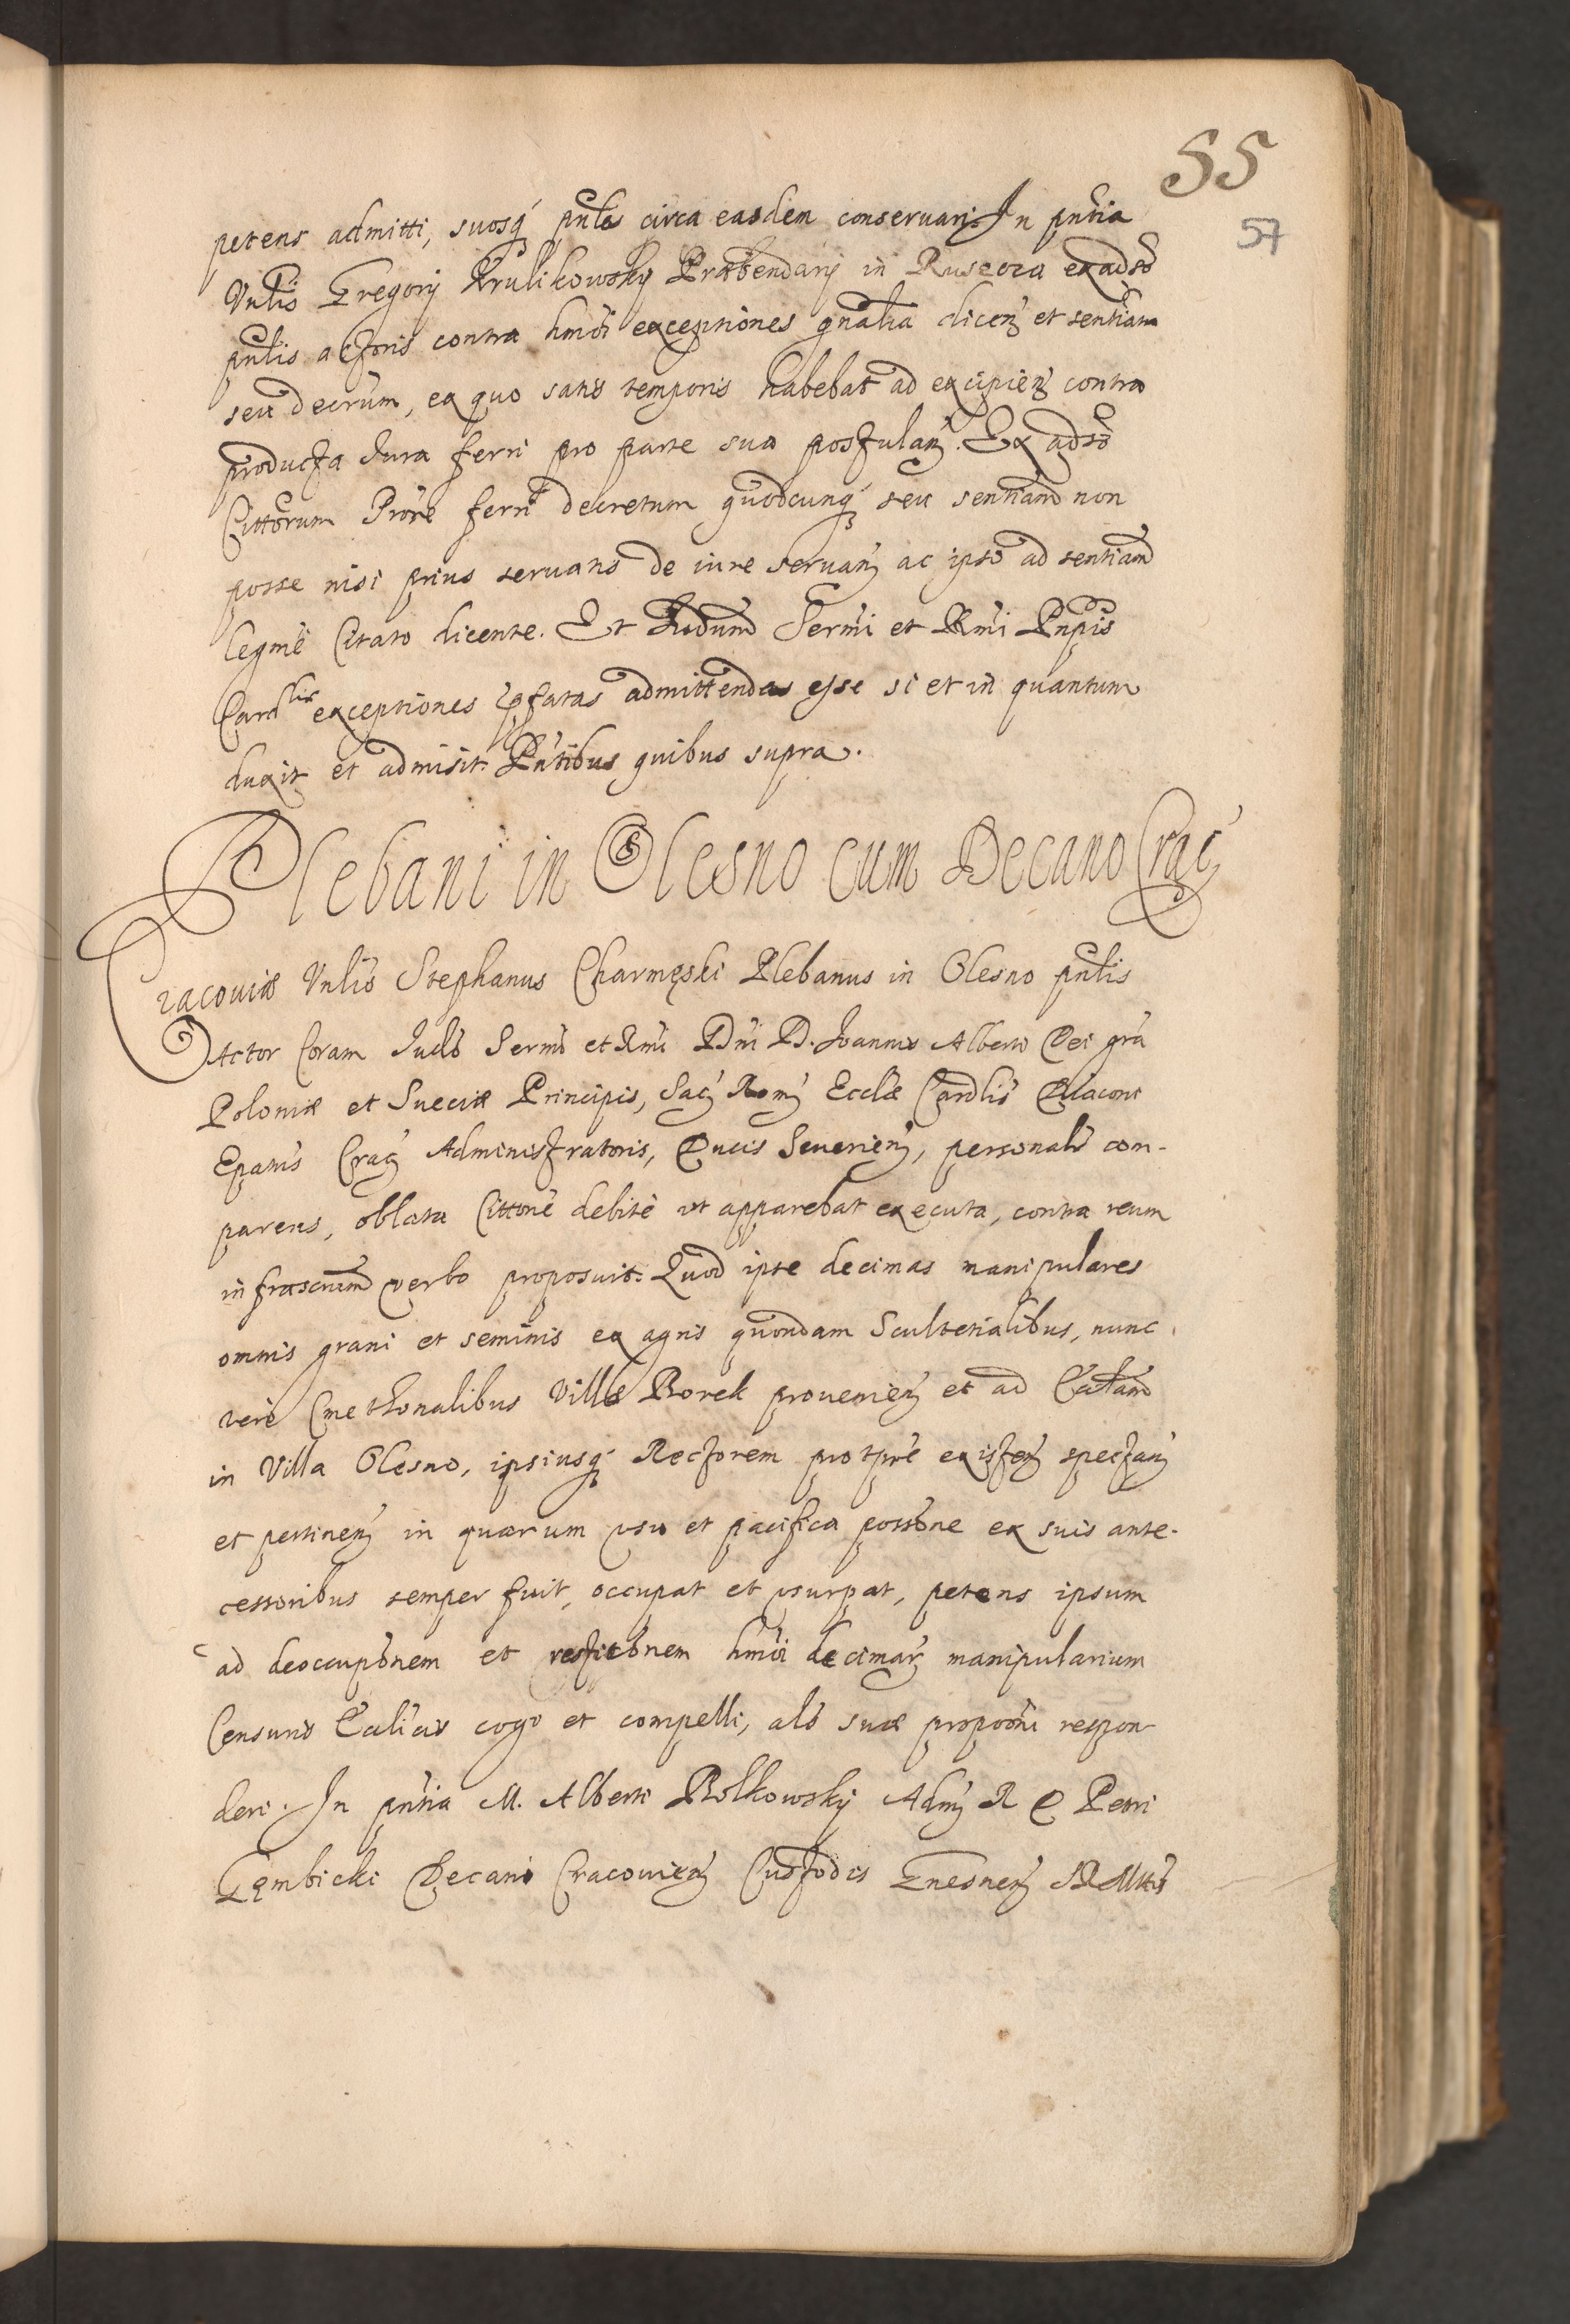 55
57
petens admitti, suosq́ pńles circa easdem conseruari. In pńtia
Vnlis Gregorij Krulikowsky Præbendarij in Ruscoza ex adso
pńlis actoris contra hmoi exceptiones gnalia dicen. et sentiam
seu decrum, ex quo satis temporis habebat ad excipien. contra
producta Iura ferri pro parte sua postulan. Ex adso
Cittorum Prore ferri decretum quodcunq́ seu sentiam non
posse nisi prius seruatis de iure seruan. ac ipso ad sentiam
legme Citato dicente. Et Iudium Sermi et Rmi Pnpis
Cardlis exceptiones pfatas admittendas esse si et in quantum
duxit et admisit. Pntibus quibus supra.
Plebani in Olesno cum Decano Crac.
Cracouiæ Vnlis Stephanus Charmęski Plebanus in Olesno pńlis
Actor Coram Iudlo Sermi et Rmi Dni D. Ioannis Alberti Dei gra
Poloniæ et Sueciæ Principis, Sac. Rom. Ecclæ Cardlis Diaconi
Epatus Crac. Administratoris, Ducis Seuerien., personalr com-
parens, oblata Cittone debite vt apparebat executa, contra reum
infrascrium verbo proposuit. Quod ipse decimas manipulares
omnis grani et seminis ex agris quondam Scultetialibus, nunc
vero Cmethonalibus Villæ Borek prouenien. et ad Eccliam
in Villa Olesno, ipsiusq́ Rectorem pro tpre existen. spectan.
et pertinen. in quarum vsu et pacifica possone ex suis ante-
cessoribus semper fuit, occupat et vsurpat, petens ipsum
ad deoccuponem et restitonem hmoi decimar. manipularium
Censuris Ecclicis cogi et compelli, als suæ propooni respon-
deri. In pńtia M. Alberti Rolkowsky Adm. R D Petri
Gembicki Decani Cracouien. Custodis Gnesnen. SRMttis